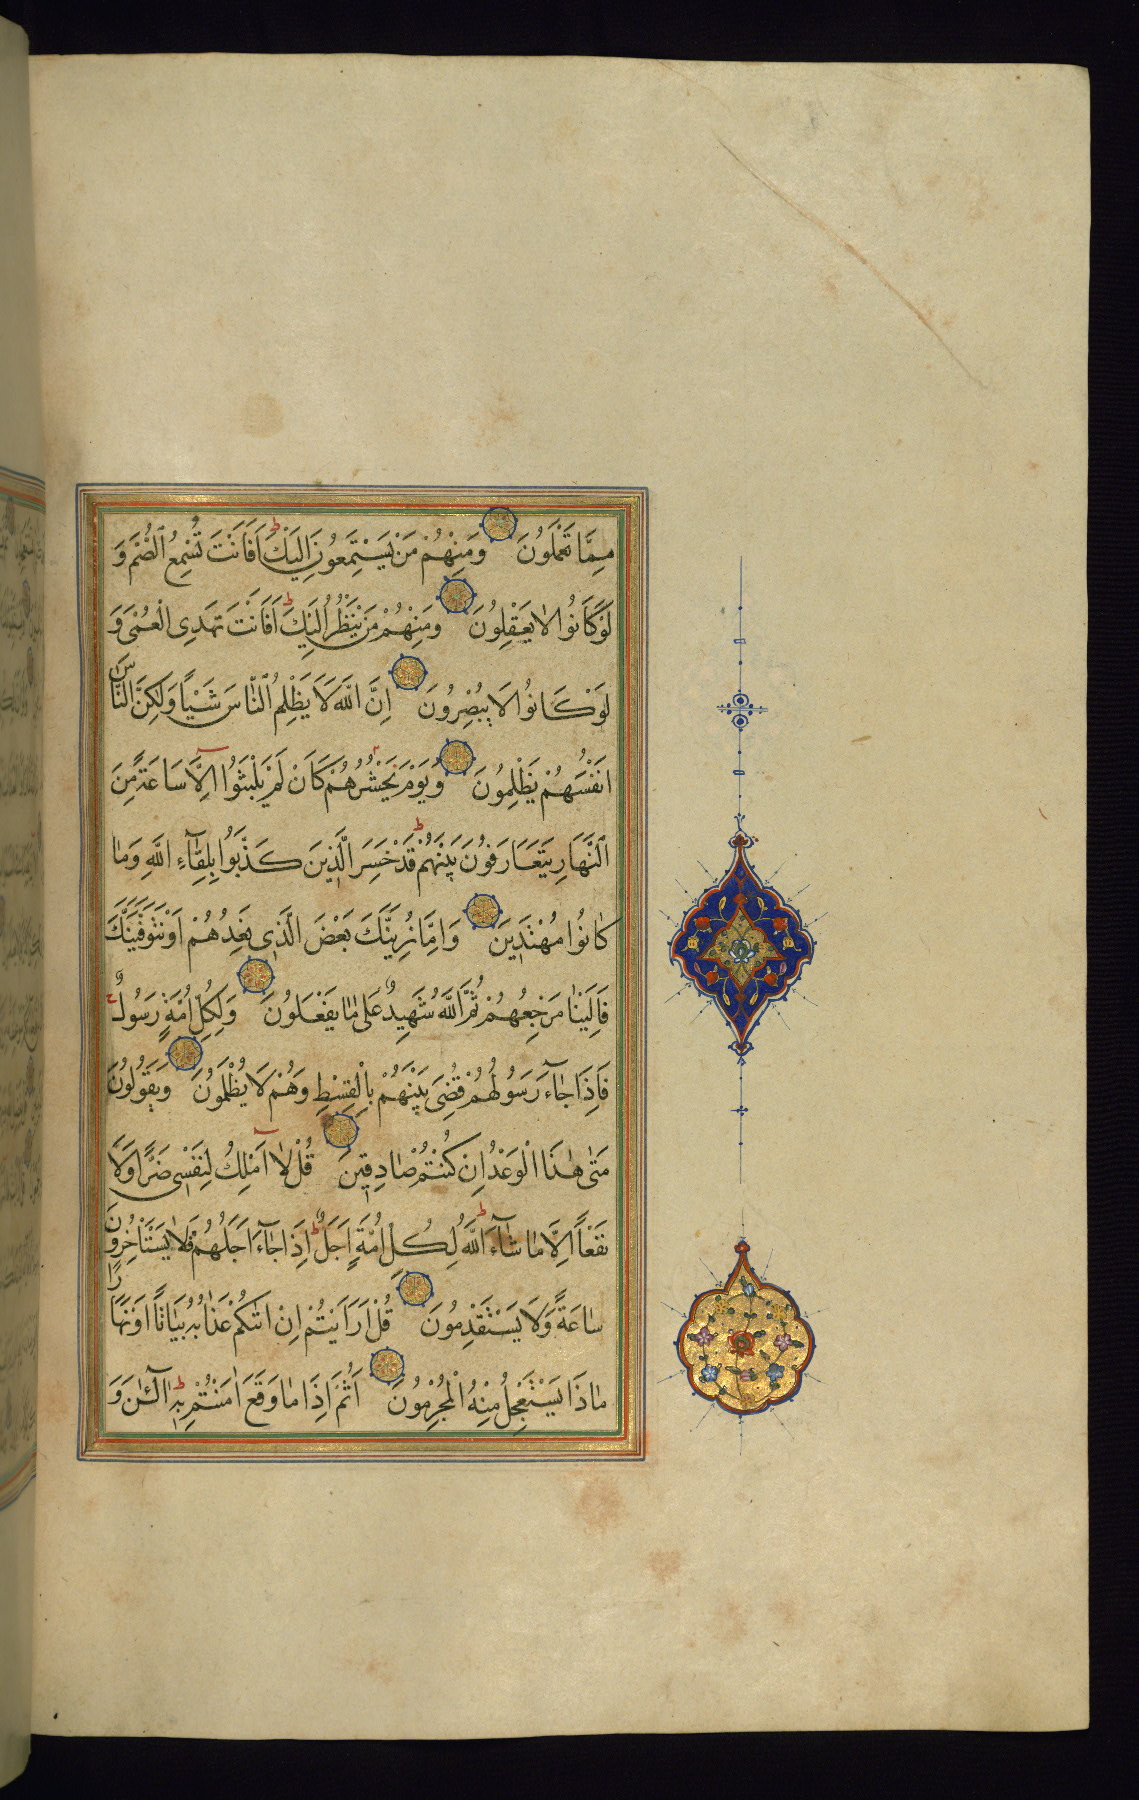 مِمَّا تَعْمَلُونَ وَمِنْهُمْ مَنْ يَسْتَمِعُونَ اِلَيْكَ ط اَفَاَنْتَ تُسْمِعُ الصُّمَّ وَ
لَوْ كَانُوا لَا يَعْقِلُونَ وَمِنْهُمْ مَنْ يَنْظُرُ اِلَيْكَ ط اَفَاَنْتَ تَهْدِى الْعُمْىَ وَ
لَوْ كَانُوا لَا يُبْصِرُونَ اِنَّ اللّٰهَ لَا يَظْلِمُ النَّاسَ شَيْـًٔا وَلٰكِنَّ النَّاسَ
اَنْفُسَهُمْ يَظْلِمُونَ وَيَوْمَ نَحْشُرُهُمْ كَاَنْ لَمْ يَلْبَثُوا اِلَّا سَاعَةً مِنَ
النَّهَارِ يَتَعَارَفُونَ بَيْنَهُمْ ط قَدْ خَسِرَ الَّذِينَ كَذَّبُوا بِلِقَآءِ اللّٰهِ وَمَا
كَانُوا مُهْتَدِينَ وَاِمَّا نُرِيَنَّكَ بَعْضَ الَّذِى نَعِدُهُمْ اَوْ نَتَوَفَّيَنَّكَ
فَاِلَيْنَا مَرْجِعُهُمْ ثُمَّ اللّٰهُ شَهِيدٌ عَلٰى مَا يَفْعَلُونَ وَلِكُلِّ اُمَّةٍ رَسُولٌ ج
فَاِذَا جَآءَ رَسُولُهُمْ قُضِىَ بَيْنَهُمْ بِالْقِسْطِ وَهُمْ لَا يُظْلَمُونَ وَيَقُولُونَ
مَتٰى هٰذَا الْوَعْدُ اِنْ كُنْتُمْ صَادِقِينَ قُلْ لَا اَمْلِكُ لِنَفْسِى ضَرًّا وَلَا
نَفْعًا اِلَّا مَا شَآءَ اللّٰهُ ط لِكُلِّ اُمَّةٍ اَجَلٌ ط اِذَا جَآءَ اَجَلُهُمْ فَلَا يَسْتَاْخِرُونَ
سَاعَةً وَلَا يَسْتَقْدِمُونَ قُلْ اَرَاَيْتُمْ اِنْ اَتٰىكُمْ عَذَابُهُ بَيَاتًا اَوْ نَهَارًا
مَاذَا يَسْتَعْجِلُ مِنْهُ الْمُجْرِمُونَ اَثُمَّ اِذَا مَا وَقَعَ اٰمَنْتُمْ بِهِ ط آلْـٰٔنَ وَ